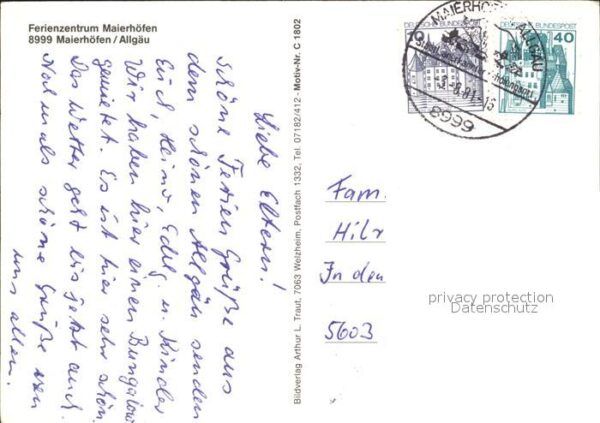 Ferienzentrum Maierhöfen
8999 Maierhöfen / Allgäu
Liebe Eltern!
Schöne Ferien Grüße aus
dem schönen Allgäu senden
Euch, Heinz, Edelg. u. Kinder
Wir haben hier einen Bungalow
gemietet. Es ist hier sehr schön.
Das Wetter geht bis jetzt auch.
Noch mals schöne Grüße von
uns allen.
Bildverlag Arthur L. Traut, 7063 Welzheim, Postfach 1332, Tel. 07182/412 - Motiv-Nr. C 1802
10
DEUTSCHE BUNDESPOST
40
MAIERHÖFEN ALLGÄU
8999
Fam.
Hilr
In den
5603
privacy protection
Datenschutz